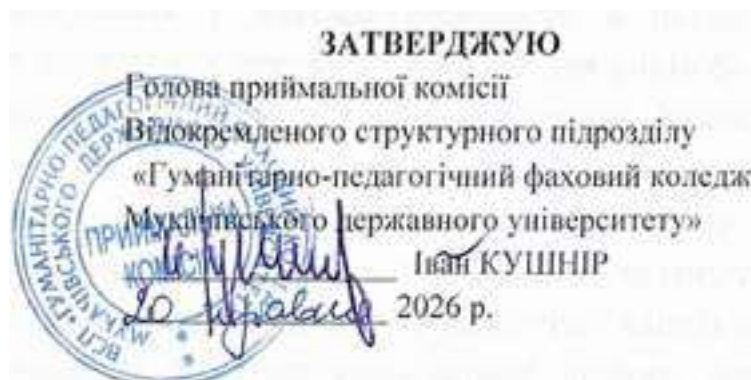 ЗАТВЕРДЖУЮ
Голова приймальної комісії
Відокремленого структурного підрозділу
«Гуманітарно-педагогічний фаховий коледж
Мукачівського державного університету»
Іван КУШНІР
20 травня 2026 р.
ВСП «ГУМАНІТАРНО ПЕДАГОГІЧНИЙ
МУКАЧІВСЬКОГО ДЕРЖАВНОГО
ПРИЙМАЛЬНА
КОМІСІЯ